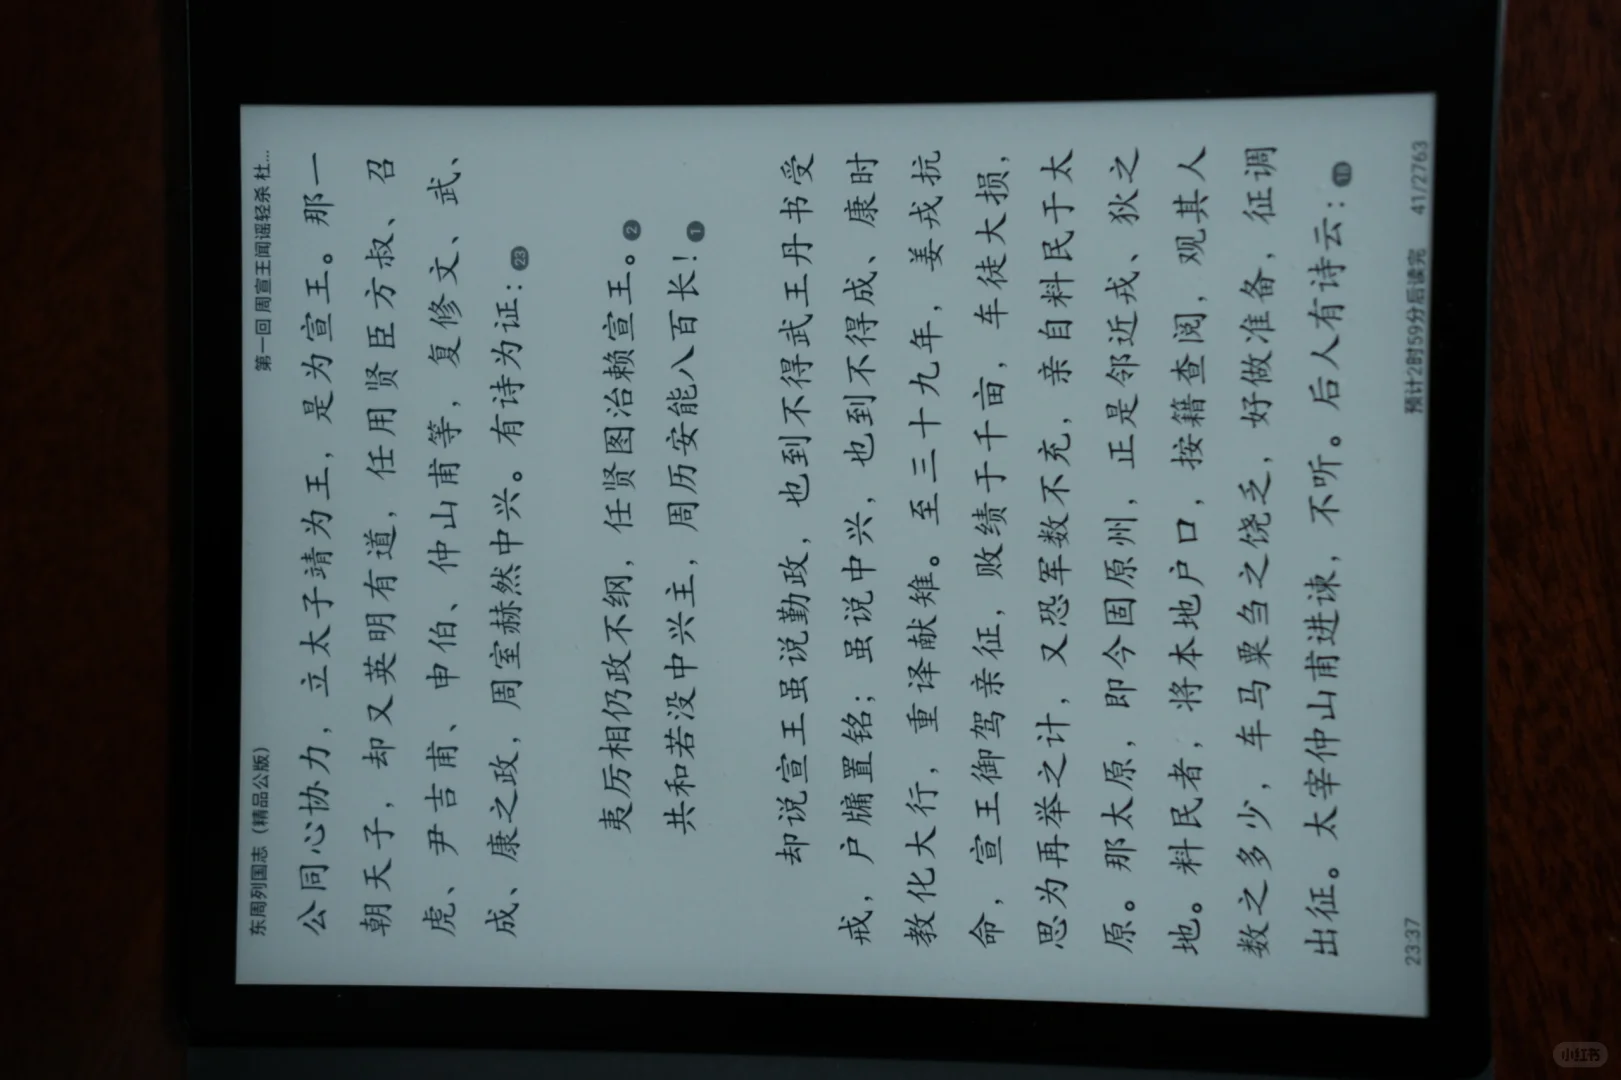 东周列国志（精品公版）
第一回 周宣王闻谣轻杀 杜...
公同心协力，立太子靖为王，是为宣王。那一
朝天子，却又英明有道，任用贤臣方叔、召
虎、尹吉甫、申伯、仲山甫等，复修文、武、
成、康之政，周室赫然中兴。有诗为证：23
夷厉相仍政不纲，任贤图治赖宣王。2
共和若没中兴主，周历安能八百长！1
却说宣王虽说勤政，也到不得武王丹书受
戒，户牖置铭；虽说中兴，也到不得成、康时
教化大行，重译献雉。至三十九年，姜戎抗
命，宣王御驾亲征，败绩于千亩，车徒大损，
思为再举之计，又恐军数不充，亲自料民于太
原。那太原，即今固原州，正是邻近戎、狄之
地。料民者，将本地户口，按籍查阅，观其人
数之多少，车马粟刍之饶乏，好做准备，征调
出征。太宰仲山甫进谏，不听。后人有诗云：
23:37
预计2时59分后读完
41/2763
小红书